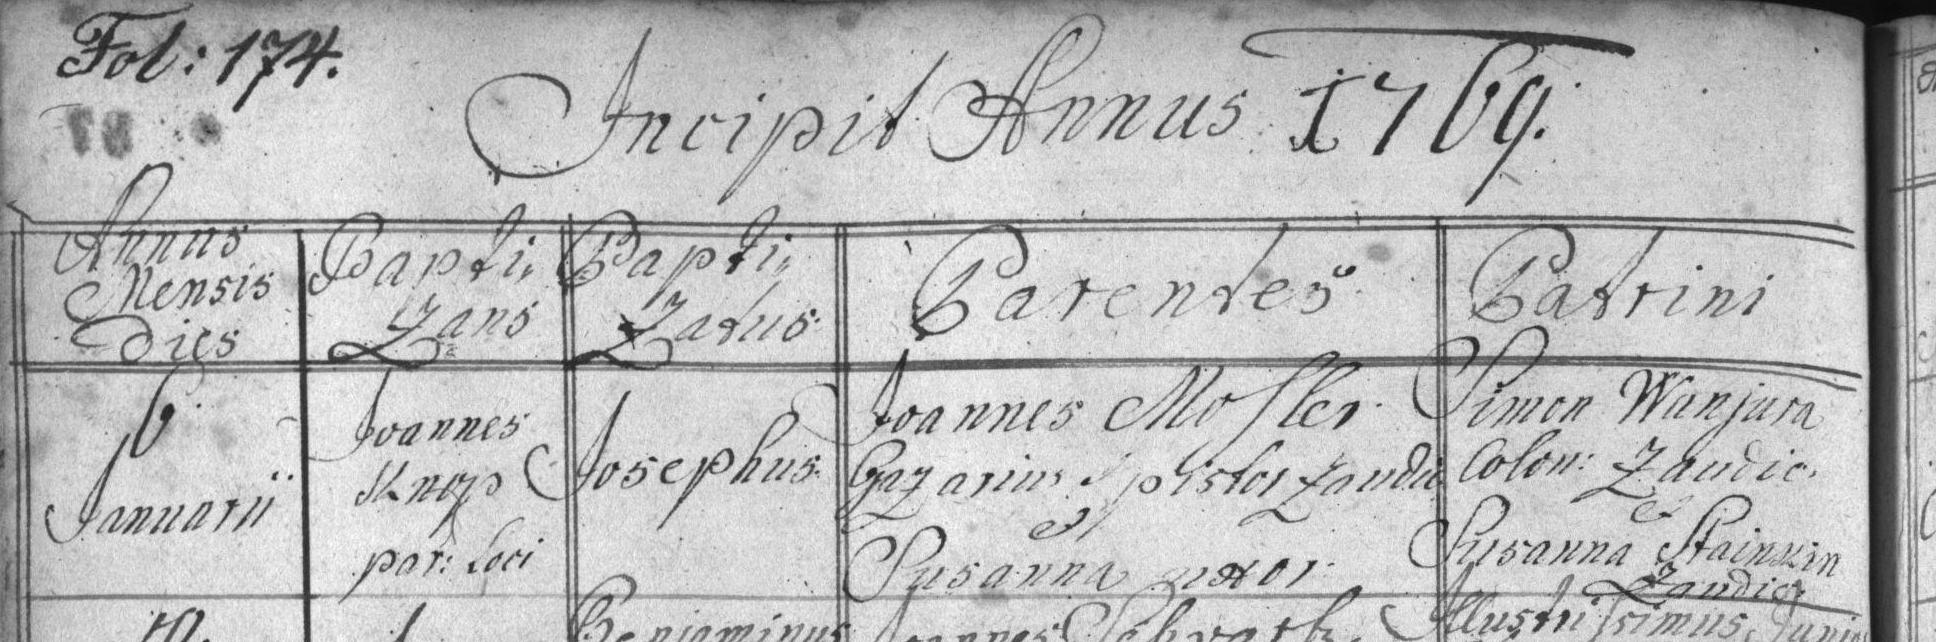 Fol: 174.
Incipit Annus 1769.
Annus
Mensis
Dies
Bapti,,
Zans
Bapti,,
Zatus.
Parentes
Patrini
6
Januarii
Joannes
Knop
par: Loci
Josephus.
Joannes Mosler.
pistor Zaudic
et
Susanna uxor.
Simon Wanjura
Colon: Zaudic.
et
Susanna Stainskin
Zaudic
Benjaminus
Joannes
Illustrissimus